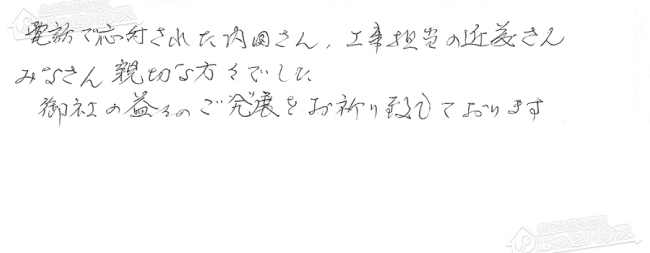 電話で応対された内田さん、工事担当の近藤さん
みなさん親切な方々でした
御社の益々のご発展をお祈り致しております